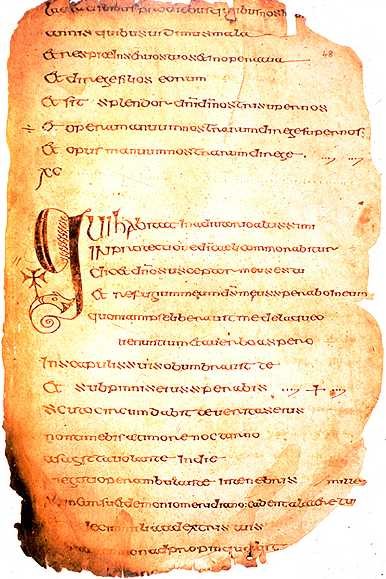 annis quibus uidimus mala
Et respice in seruos tuos et in opera tua 48
Et dirige filios eorum
Et sit splendor dni di nostri super nos
Et opera manuum nostrarum dirige super nos
Et opus manuum nostrarum dirige
xc
Qui habitat in adiutorio altissimi
IN protectione di caeli commorabitur
Dicet dno susceptor meus es tu
et refugium meum ds meus sperabo in eum
quoniam ipse liberauit me de laqueo
uenantium et a uerbo aspero
In scapulis suis obumbrauit te
Et sub pinnis eius sperabis
scuto circumdabit te ueritas eius
non timebis a timore nocturno
a sagitta uolante in die
negotio perambulante in tenebris mille
ab incursu et demonio meridiano cadent a latere tuo
decim milia a dextris tuis
non adpropinquabit